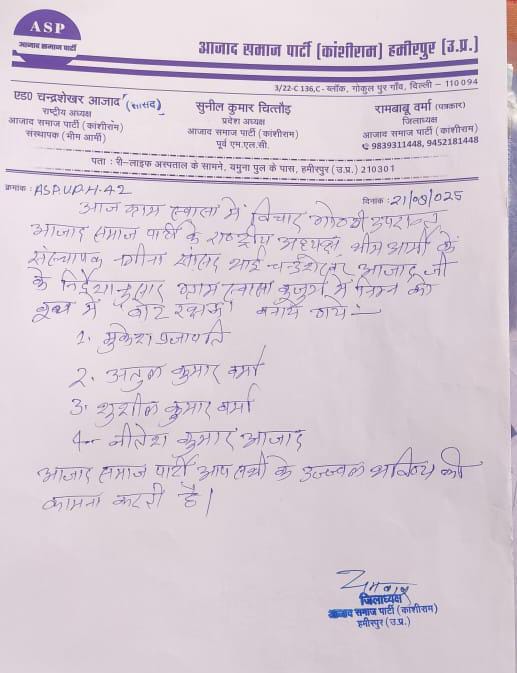 ASP
आजाद समाज पार्टी
आजाद समाज पार्टी (कांशीराम) हमीरपुर (उ.प्र.)
3/22-C 136,C - ब्लॉक, गोकुल पुर गाँव, दिल्ली - 110 094
एड0 चन्द्रशेखर आजाद (सांसद)
राष्ट्रीय अध्यक्ष
आजाद समाज पार्टी (कांशीराम)
संस्थापक (भीम आर्मी)
सुनील कुमार चित्तौड़
प्रदेश अध्यक्ष
आजाद समाज पार्टी (कांशीराम)
पूर्व एम.एल.सी.
रामबाबू वर्मा (पत्रकार)
जिलाध्यक्ष
आजाद समाज पार्टी (कांशीराम)
9839311448, 9452181448
पता : री-लाइफ अस्पताल के सामने, यमुना पुल के पास, हमीरपुर (उ.प्र.) 210301
क्रमांक : ASP.UP.H-42
दिनांक : 21/09/025
आज ग्राम स्वासा में विचार गोष्ठी उपरान्त
आजाद समाज पार्टी के राष्ट्रीय अध्यक्ष भीम आर्मी के
संस्थापक नगीना सांसद भाई चन्द्रशेखर आजाद जी
के निर्देशानुसार ग्राम स्वासा बुजुर्ग में निम्न को
बूथ में वोट रक्षक बनाये गये :-
1. मुकेश प्रजापति
2. अतुल कुमार वर्मा
3. सुशील कुमार वर्मा
4- नीतेश कुमार आजाद
आजाद समाज पार्टी आप सभी के उज्ज्वल भविष्य की
कामना करती है।
जिलाध्यक्ष
आजाद समाज पार्टी (कांशीराम)
हमीरपुर (उ.प्र.)